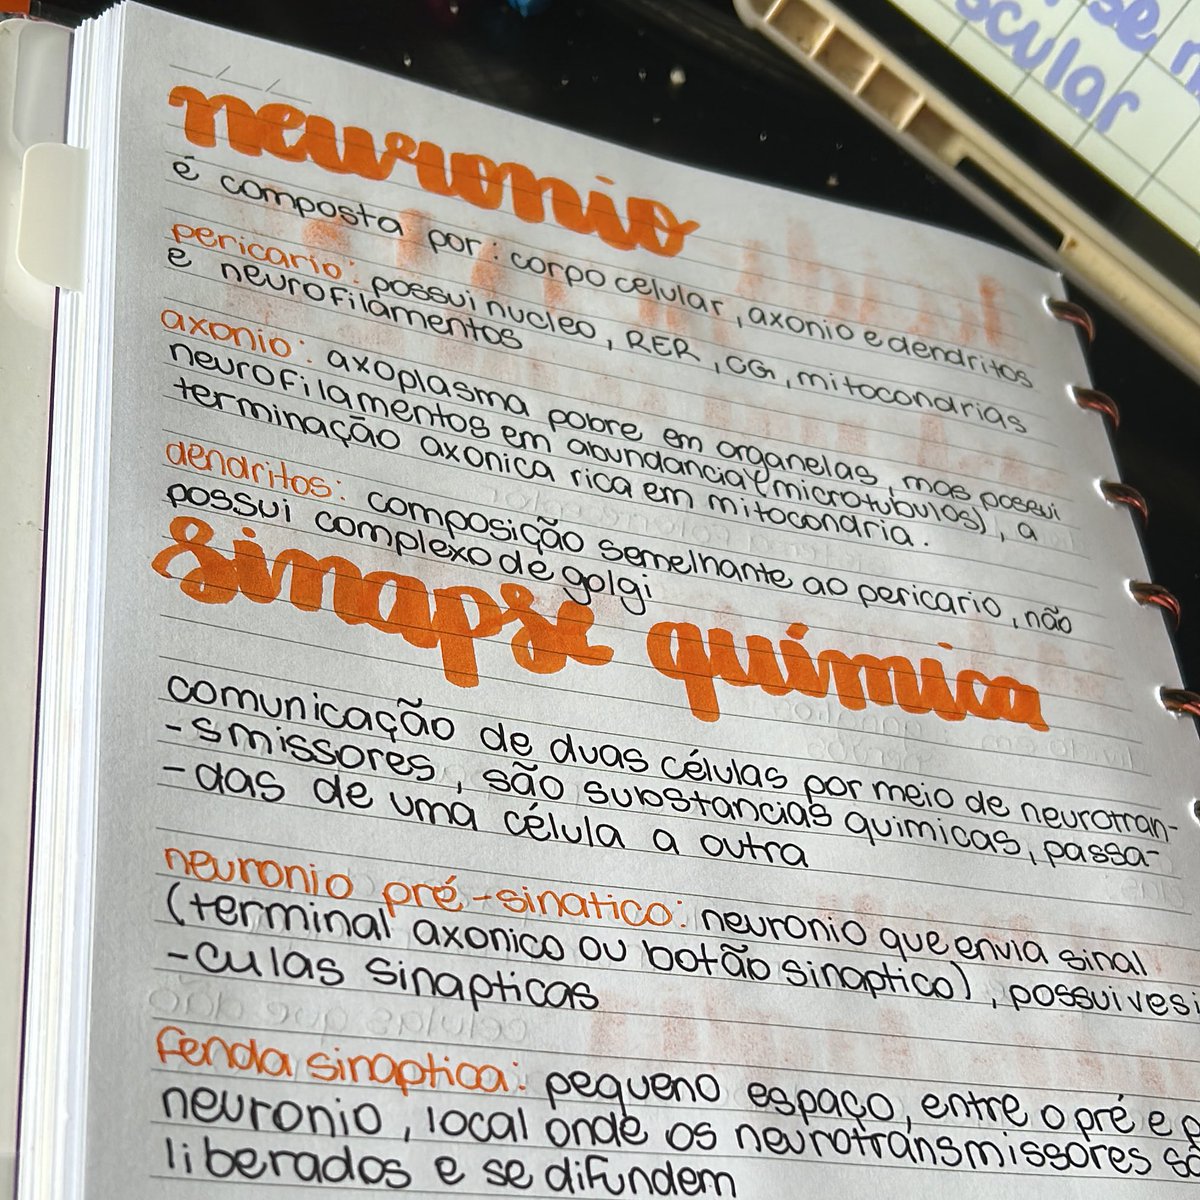 neuronio
é composta por: corpo celular, axonio e dendritos
pericario: possui nucleo, RER, CG, mitocondrias
e neurofilamentos
axonio: axoplasma pobre em organelas, mas possui
neurofilamentos em abundancia (microtubulos), a
terminação axonica rica em mitocondria.
dendritos: composição semelhante ao pericario, não
possui complexo de golgi
sinapse química
comunicação de duas células por meio de neurotran-
-smissores, são substancias quimicas, passa-
-das de uma célula a outra
neuronio pré-sinatico: neuronio que envia sinal
(terminal axonico ou botão sinaptico), possui vesi
-culas sinapticas
fenda sinaptica: pequeno espaço, entre o pré e
neuronio, local onde os neurotransmissores
liberados e se difundem